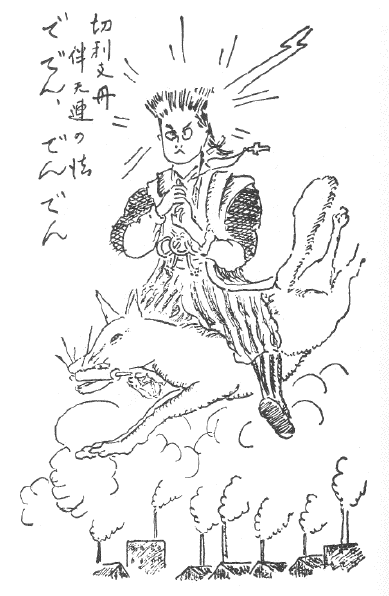 切利支丹
伴天連の法
で でん、でん でん